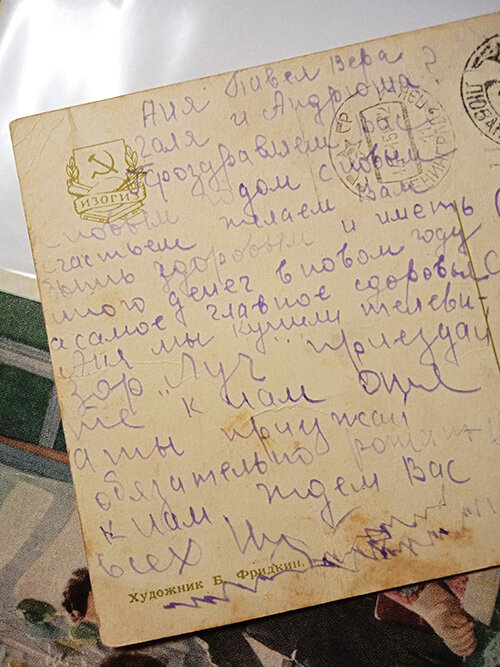 Аня Павел Вера
Галя и Андрюша?
Проздравляем вас
с новым годом с новым
счастьем желаем вам
быть здоровым и иметь
много денег в новом году
а самое главное здоровья
Аня мы купили телеви-
зор „Луч" приезжай
те к нам
а ты приужай
обязательно
к нам ждем Вас
всех
ИЗОГИЗ
Художник Б. Фридкин.